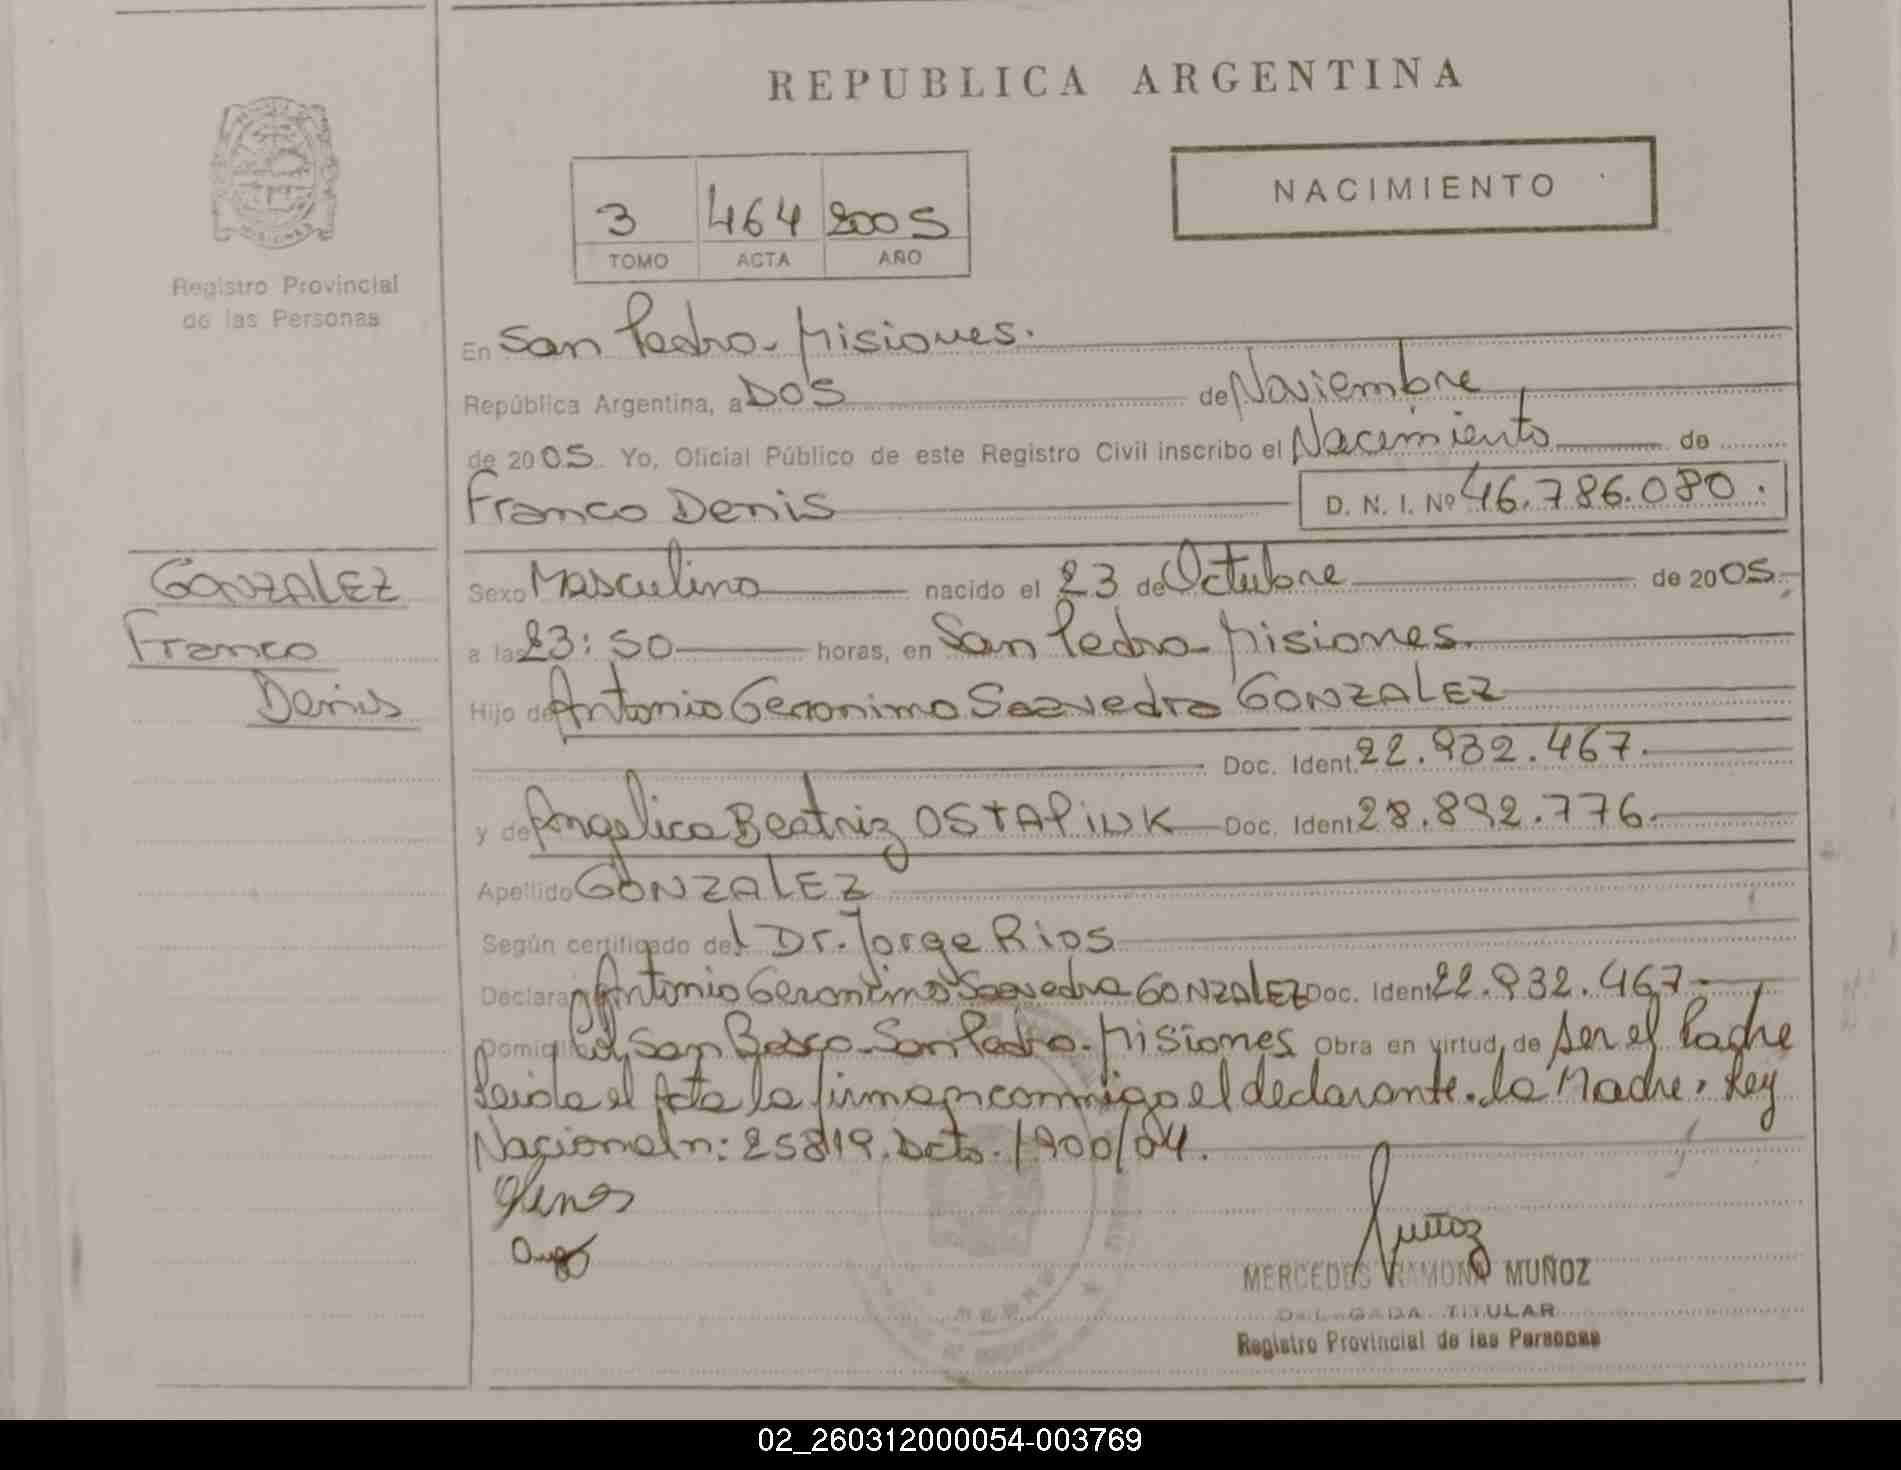 REPUBLICA ARGENTINA
NACIMIENTO
3 464 2005
TOMO ACTA AÑO
Registro Provincial
de las Personas
En San Pedro - Misiones.
República Argentina, a DOS de Noviembre
de 2005. Yo, Oficial Público de este Registro Civil inscribo el Nacimiento de
Franco Denis D. N. I. Nº 46.786.080.
GONZALEZ
Franco
Denis
Sexo Masculino nacido el 23 de Octubre de 2005.
a las 23:50 horas, en San Pedro - Misiones.
Hijo de Antonio Geronimo Saavedra GONZALEZ
Doc. Ident. 22.932.467.
y de Angelica Beatriz OSTAPIUK Doc. Ident. 28.892.776.
Apellido GONZALEZ
Según certificado del Dr. Jorge Rios
Declara Antonio Geronimo Saavedra GONZALEZ Doc. Ident. 22.932.467.
Domicilio San Bosco - San Pedro - Misiones Obra en virtud de ser el Padre
Leida el Acta la firman conmigo el declarante. La Madre. Ley
Nacional n: 25819. Dcto. 1900/04.
Muñoz
MERCEDES RAMONA MUÑOZ
DELEGADA TITULAR
Registro Provincial de las Personas
02_260312000054-003769